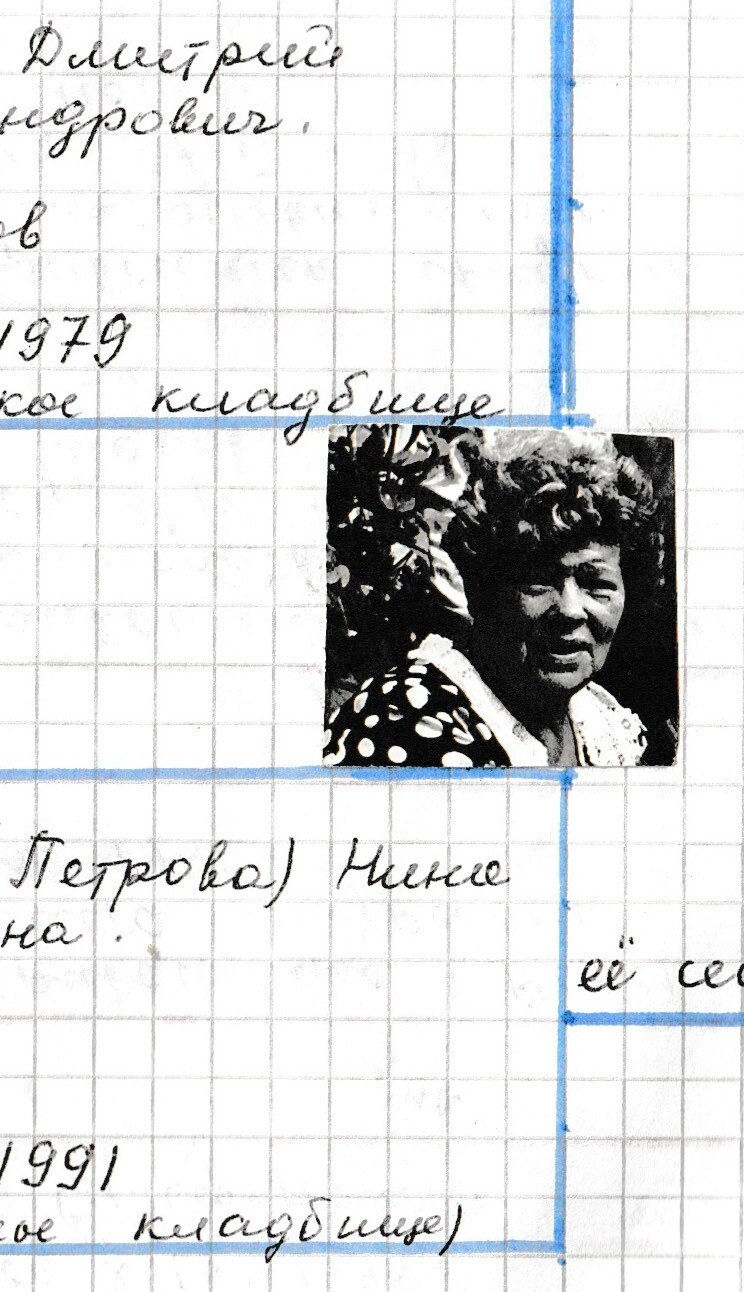 Дмитрий
ндрович.
ов
1979
кое кладбище
Петрова) Нина
на.
её сес
1991
ое кладбище)